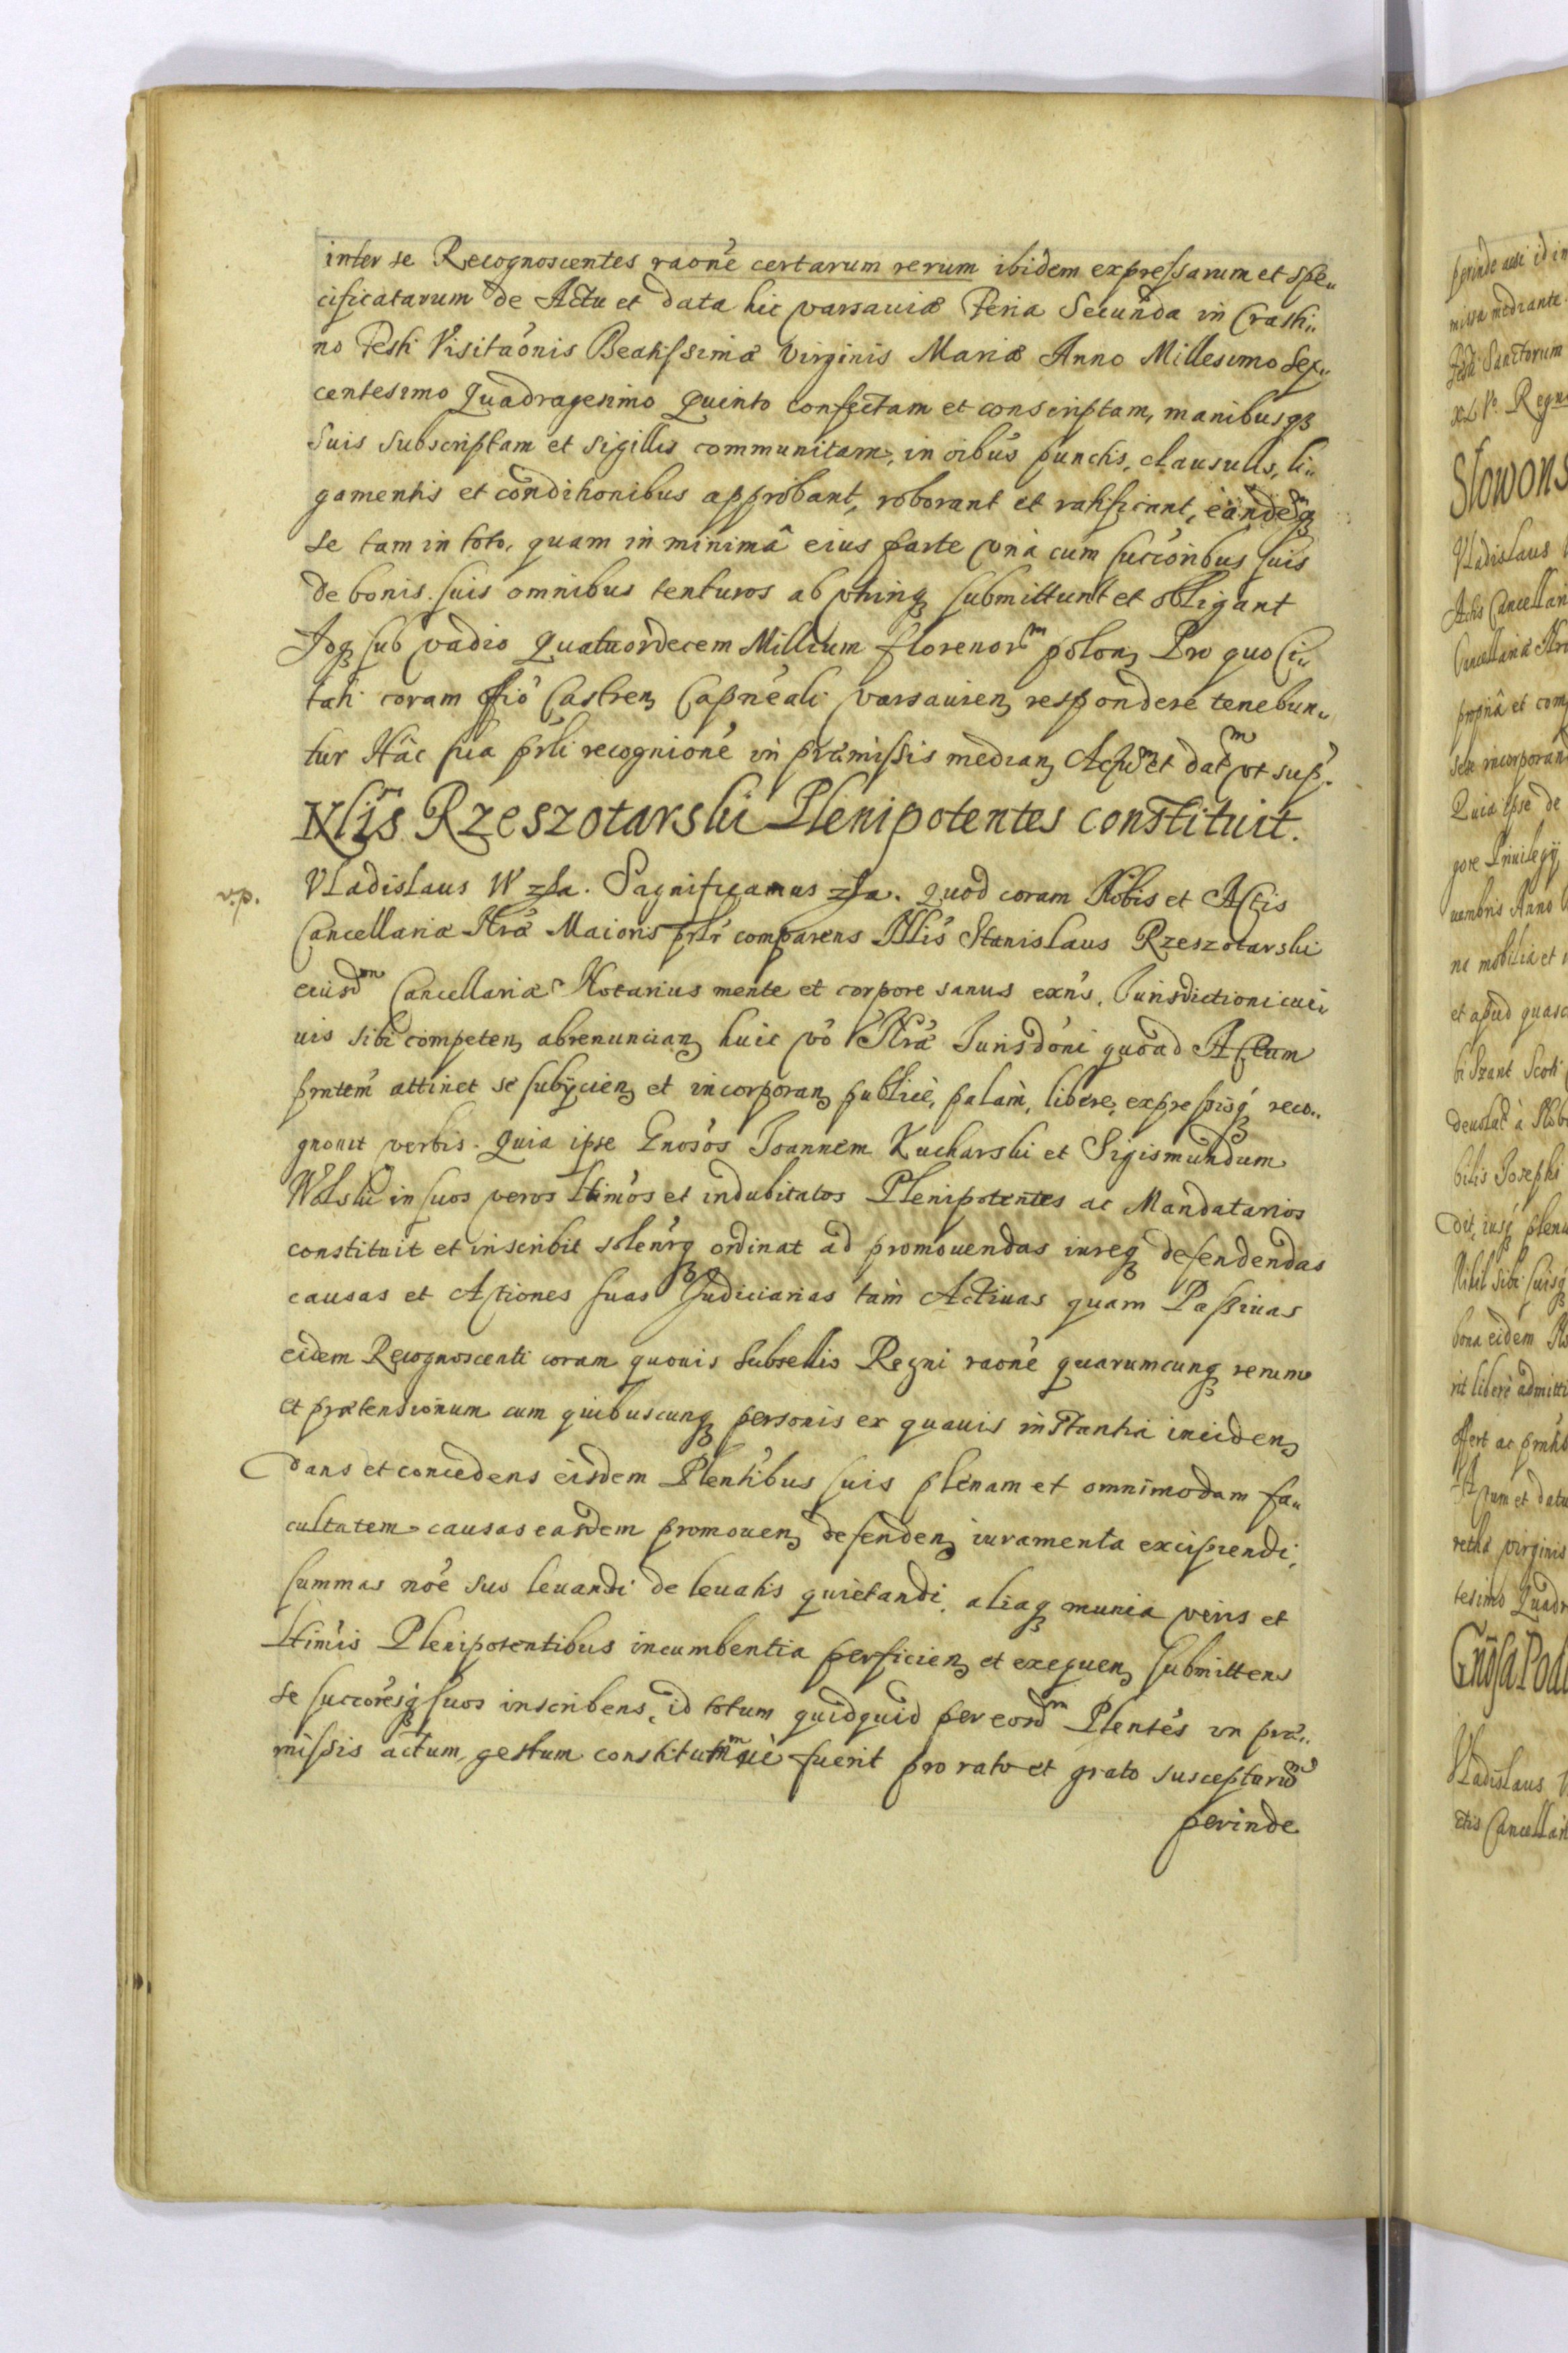 inter se Recognoscentes raoné certarum rerum ibidem expressarum et spe„
cificatarum de Actu et data hic Varsaviæ Feria Secunda in Crasti„
no Festi Visitaónis Beatissimæ Virginis Mariæ Anno Millesimo Sex„
centesimo Quadragesimo Quinto confectam et conscriptam, manibusqꝫ
suis subscriptam et sigillis communitam, in oíbus punctis, clausulis, li„
gamentis et conditionibus approbant, roborant et ratificant, eandeᵐqꝫ
se tam in toto, quam in minimâ eius parte vnà cum succóribus suis
de bonis suis omnibus tenturos ab vtrinqꝫ submittunt et obligant
Idqꝫ sub vadio Quatuordecem Millium florenorᵐ polonꝫ Pro quo Ci„
tati coram offió Castrenꝫ Capnéali Varsavienꝫ respondere tenebun„
tur Hâc sua prli recognioné in præmissis medianꝫ Actuᵐ et datᵐ vt sup.
Nlis Rzeszotarski Plenipotentes constituit.
v.p.
Vladislaus IV zſa. Significamus zſa. Quod coram Nobis et Actis
Cancellariæ Nræ Maioris prlr comparens Nlis Stanislaus Rzeszotarski
eiusdᵐ Cancellariæ Notarius mente et corpore sanus exńs, Iurisdictioni cui„
uis sibi competenꝫ abrenuncianꝫ huic vó Nræ Iurisdóni quoad Actum
prntem attinet se subijcienꝫ et incorporanꝫ publicè, palàm, liberè, expressisqꝫ reco„
gnouit verbis. Quia ipse Gnosós Ioannem Kucharski et Sigismundum
Wolski in suos veros ltimós et indubitatos Plenipotentes ac Mandatarios
constituit et inscribit solenrqꝫ ordinat ad promouendas iureqꝫ defendendas
causas et Actiones suas Iudiciarias tàm Actiuas quam Passiuas
eidem Recognoscenti coram quouis Subsellio Regni raoné quarumcunqꝫ rerum
et prætensionum cum quibuscunqꝫ personis ex quauis instantia incidenꝫ
Dans et concedens eisdem Plentíbus suis plenam et omnimodam fa„
cultatem causas easdem promouenꝫ defendenꝫ iuramenta excipiendi,
summas nóe suo leuandi de leuatis quietandi, aliaqꝫ munia veris et
ltimís Plenipotentibus incumbentia perficienꝫ et exequenꝫ submittens
se succóresqꝫ suos inscribens, id totum quidquid per eosdᵐ Plentés in præ„
missis actum, gestum constitutᵐuè fuerit pro rato et grato suscepturuᵐ
perinde